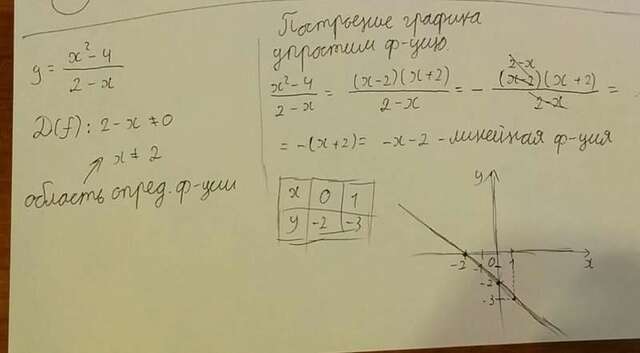 y = (x² - 4)/(2 - x)
D(f): 2 - x ≠ 0
x ≠ 2
область опред. ф-ции
Построение графика
упростим ф-цию.
(x² - 4)/(2 - x) = ((x-2)(x+2))/(2 - x) = - ((x-2)(x+2))/(2-x) =
2-x
= -(x+2) = -x-2 - линейная ф-ция
x 0 1
y -2 -3
y
-2 -1 0 1 x
-2
-3